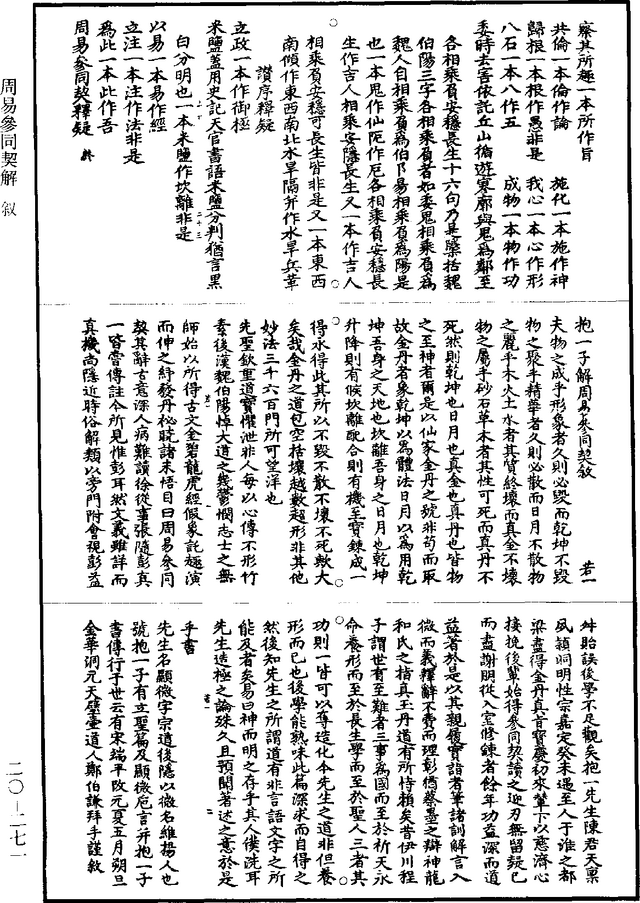 察其所趣一本所作旨
共倫一本倫作論　施化一本施作神
歸根一本根作愚非是　我心一本心作形
八石一本八作五　成物一本物作功
委時去害依託丘山循遊寥廓與鬼為鄰至
各相乘負安穩長生十六句乃是檃括魏
伯陽三字各相乘負者如委鬼相乘負為
魏人自相乘負為伯阝昜相乘負為陽是
也一本鬼作仙阨作厄各相乘負安穩長
生作吉人相乘安隱長生又一本作吉人
相乘負安穩可長生皆非是又一本東西
南傾作東西南北水旱隔并作水旱兵革
讚序釋疑
立政一本作御極
米鹽蓋用史記天官書語米鹽分判猶言黑
白分明也一本米鹽作坎離非是
以易一本易作經
立注一本注作法非是
為此一本此作吾
周易參同契釋疑　終
抱一子解周易參同契敘　若一
夫物之成乎形象者久則必毀而乾坤不毀
物之聚乎精華者久則必散而日月不散物
之麗乎木火土水者其質終壞而真金不壞
物之屬乎砂石草木者其性可死而真丹不
死然則乾坤也日月也真金也真丹也皆物
之至神者爾是以仙家金丹之號非苟而取
故金丹者象乾坤以為體法日月以為用乾
坤吾身之天地也坎離吾身之日月也乾坤
升降則有候坎離配合則有機至寶鍊成一
得永得此其所以不毀不散不壞不死歟大
矣哉金丹之道包空括壤越數超形非其他
妙法三千六百門所可望洋也
先聖欽重道寶懼泄非人每以心傳不形竹
素後漢魏伯陽悼大道之幾鬱憫志士之無
師始以所得古文金碧龍虎經假象託趣演
而伸之紓發丹祕曉諸未悟目曰周易參同
契其辭古意深人病難讀徐從事張隨彭真
一皆嘗傳註今所見惟彭耳然文義雖詳而
真機尚隱近時俗解類以旁門附會視彭益
舛貽誤後學不足觀矣抱一先生陳君天稟
夙穎洞明性宗嘉定癸未遇至人于淮之都
梁盡得金丹真旨寶慶初來輦下以慈濟心
接挽後輩始得參同契讀之迎刃無留疑已
而盡謝朋從入室修鍊者餘年功益深而道
益著於是以其親履實詣者筆諸訓解言入
微而義釋辭不費而理彰猶蔡墨之辯神龍
和氏之指真玉丹道有所恃賴矣昔伊川程
子謂世有至難者三事為國而至於祈天永
命養形而至於長生學而至於聖人三者其
功則一皆可以奪造化今先生之道非但養
形而已也後學能熟味此篇深求而自得之
然後知先生之所謂道有非言語文字之所
能及者矣易曰神而明之存乎其人僕洗耳
先生造極之論殊久且預聞著述之意於是
乎書
先生名顯微字宗道後隱以微名維揚人也
號抱一子有立聖篇及顯微卮言并抱一子
書傳行于世云有宋端平改元夏五月朔旦
金華洞元天璧壺道人鄭伯謙拜手謹敘
周易參同契解　敘
二〇—二七一